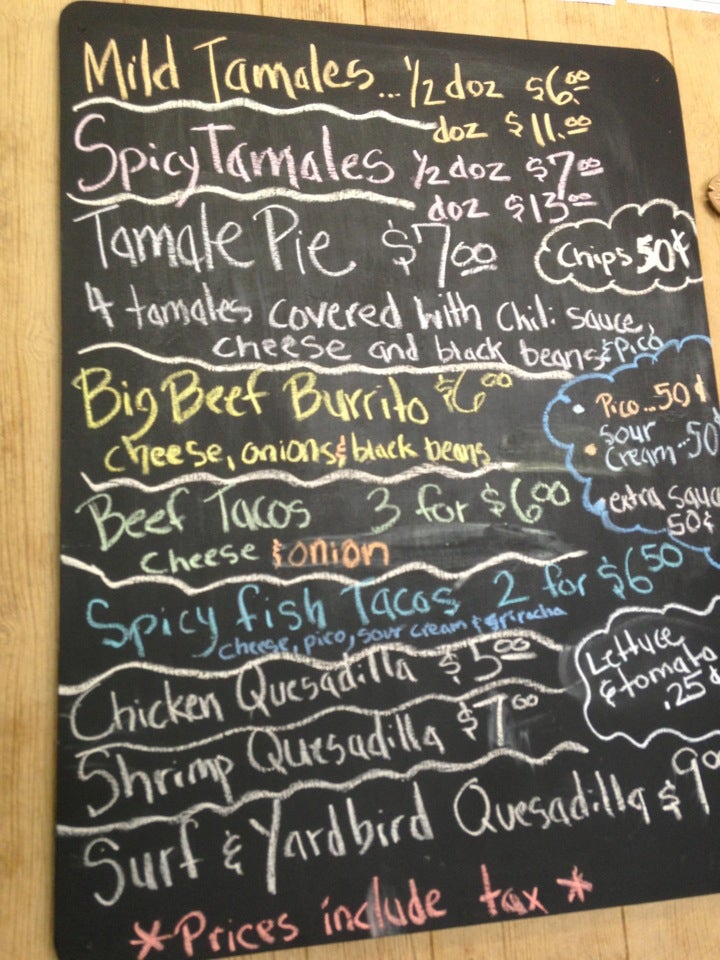 Mild Tamales... 1/2 doz $6.00
doz $11.00
Spicy Tamales 1/2 doz $7.00
doz $13.00
Tamale Pie $7.00
Chips 50¢
4 tamales covered with chili sauce,
cheese and black beans & pico
Big Beef Burrito $6.00
cheese, onions & black beans
Pico...50¢
sour
cream...50
extra sauce
50¢
Beef Tacos 3 for $6.00
cheese & onion
Spicy fish Tacos 2 for $6.50
cheese, pico, sour cream & sriracha
Lettuce
& tomato
.25¢
Chicken Quesadilla $5.00
Shrimp Quesadilla $7.00
Surf & Yardbird Quesadilla $9.00
*Prices include tax*